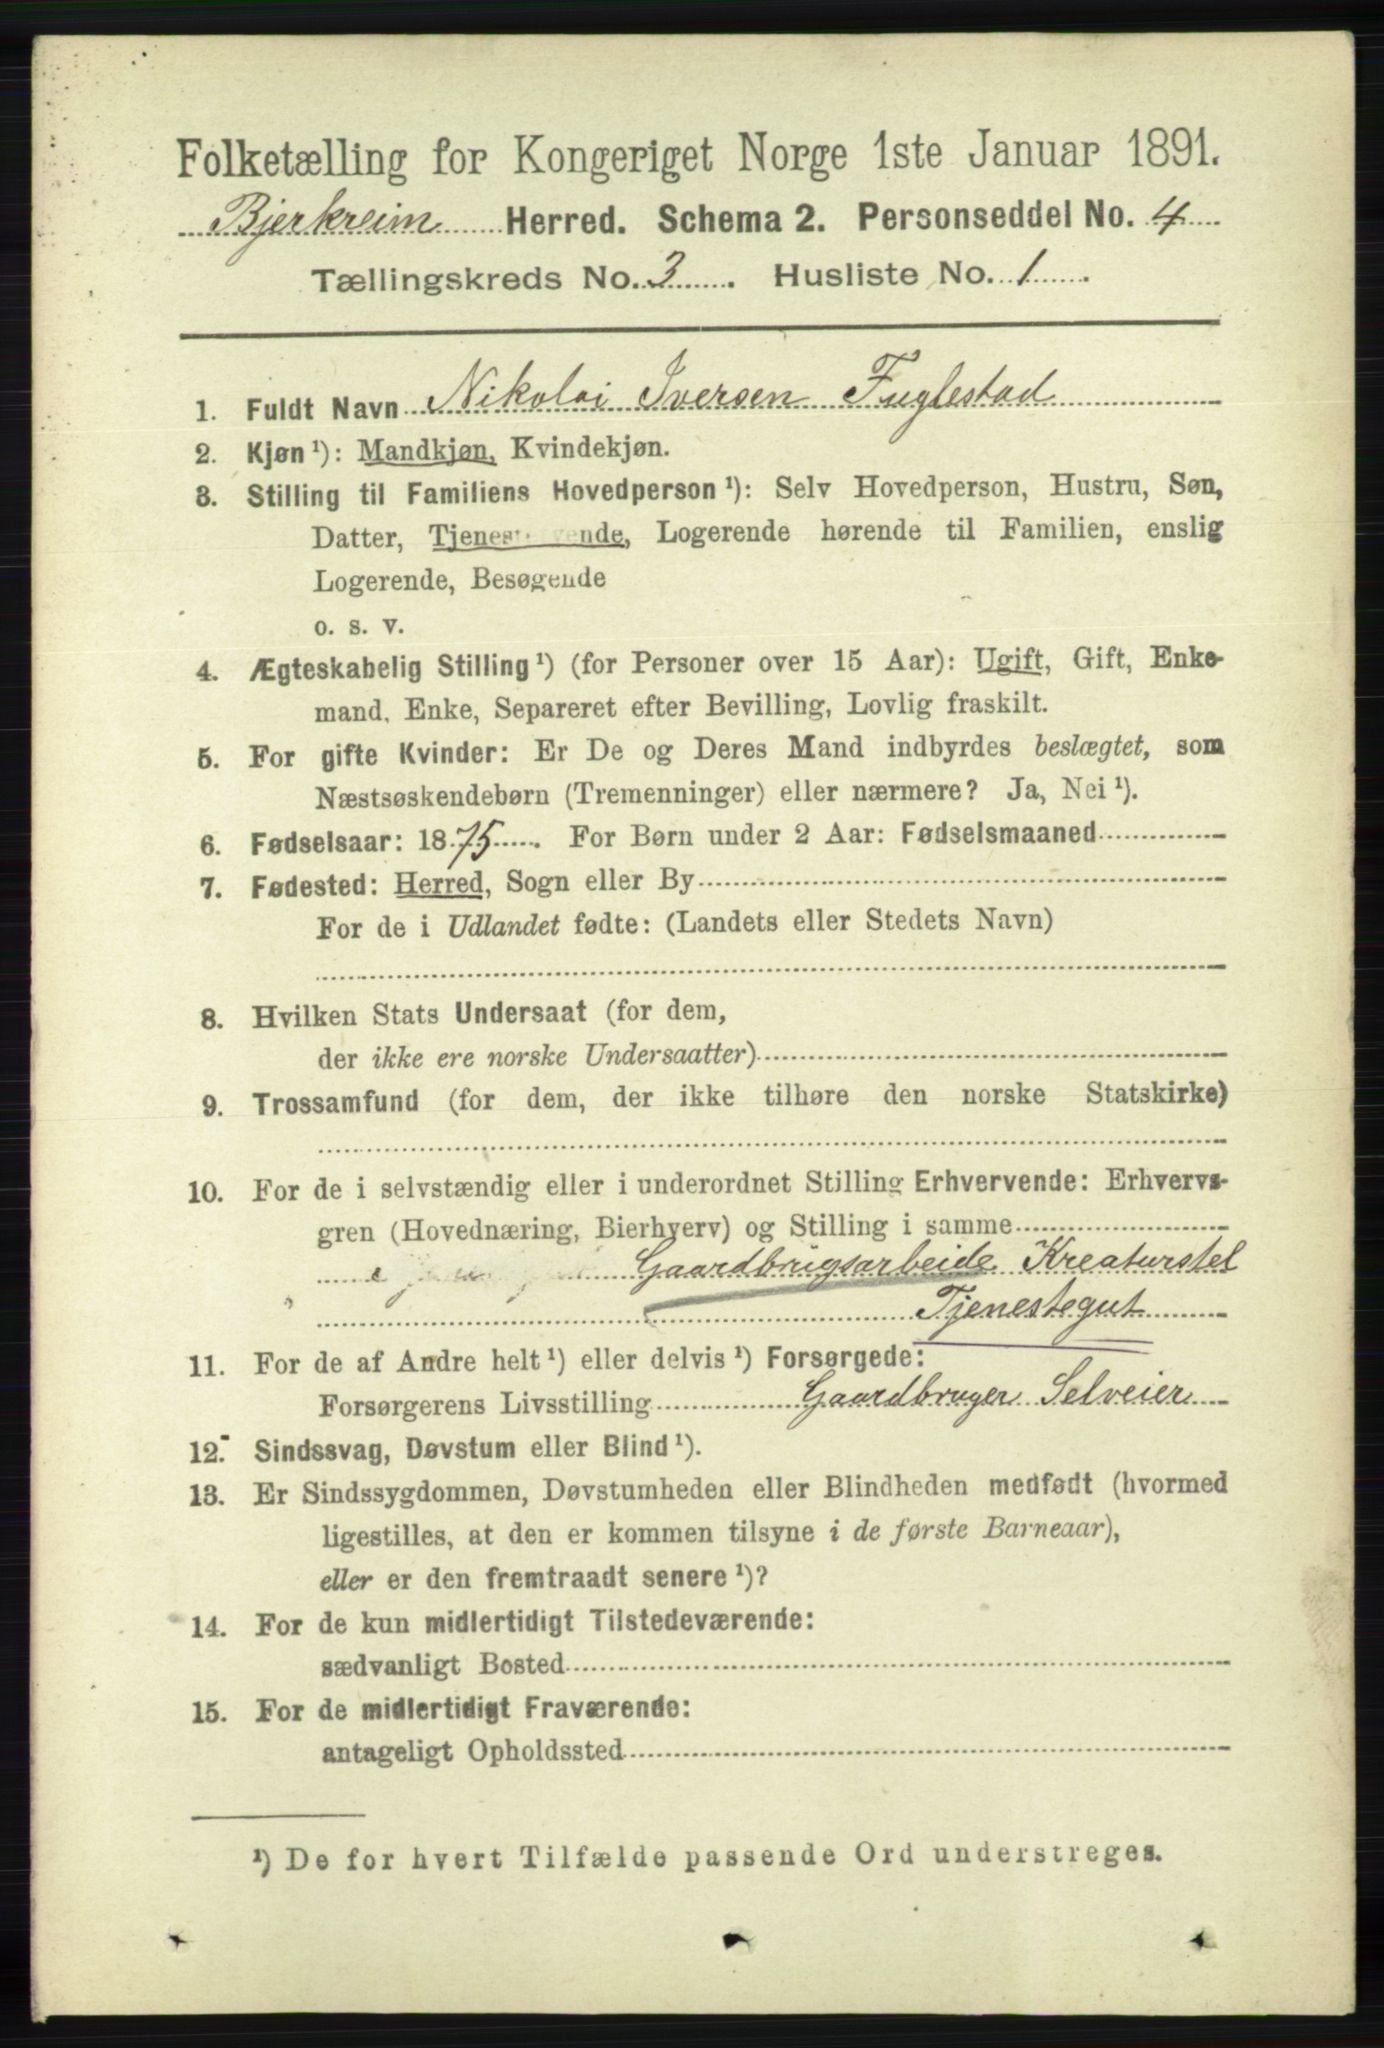 Folketælling for Kongeriget Norge 1ste Januar 1891.
Bjerkreim Herred. Schema 2. Personseddel No. 4
Tællingskreds No. 3. Husliste No. 1.
1. Fuldt Navn Nikolai Iversen Fuglestad
2. Kjøn ¹): Mandkjøn, Kvindekjøn.
3. Stilling til Familiens Hovedperson ¹): Selv Hovedperson, Hustru, Søn,
Datter, Logerende hørende til Familien, enslig
Logerende, Besøgende
o. s. v.
4. Ægteskabelig Stilling ¹) (for Personer over 15 Aar): Ugift, Gift, Enke-
mand, Enke, Separeret efter Bevilling, Lovlig fraskilt.
5. For gifte Kvinder: Er De og Deres Mand indbyrdes beslægtet, som
Næstsøskendebørn (Tremenninger) eller nærmere? Ja, Nei ¹).
6. Fødselsaar: 1875. For Børn under 2 Aar: Fødselsmaaned
7. Fødested: Herred, Sogn eller By
For de i Udlandet fødte: (Landets eller Stedets Navn)
8. Hvilken Stats Undersaat (for dem,
der ikke ere norske Undersaatter)
9. Trossamfund (for dem, der ikke tilhøre den norske Statskirke)
10. For de i selvstændig eller i underordnet Stilling Erhvervende: Erhvervs-
gren (Hovednæring, Bierhverv) og Stilling i samme
Gaardbrugsarbeide Kreaturstel
Tjenestegut
11. For de af Andre helt ¹) eller delvis ¹) Forsørgede:
Forsørgerens Livsstilling Gaardbruger Selveier
12. Sindssvag, Døvstum eller Blind ¹).
13. Er Sindssygdommen, Døvstumheden eller Blindheden medfødt (hvormed
ligestilles, at den er kommen tilsyne i de første Barneaar),
eller er den fremtraadt senere ¹)?
14. For de kun midlertidigt Tilstedeværende:
sædvanligt Bosted
15. For de midlertidigt Fraværende:
antageligt Opholdssted
¹) De for hvert Tilfælde passende Ord understreges.